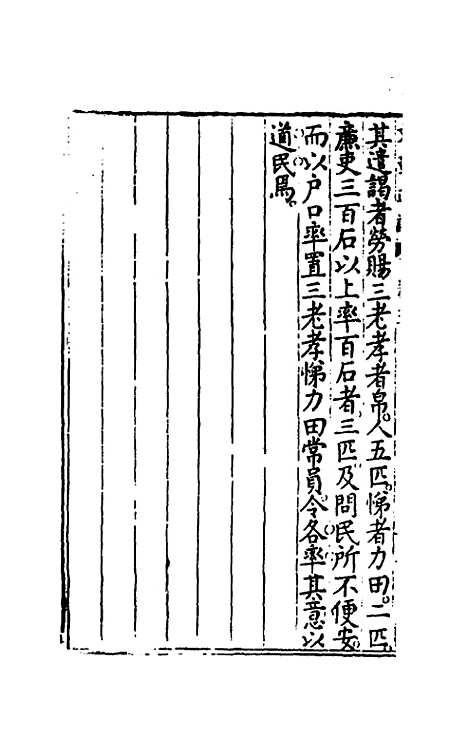 其遣謁者勞賜三老孝者帛人五匹悌者力田二匹
廉吏三百石以上率百石者三匹及問民所不便安
而以戶口率置三老孝悌力田常員令各率其意以
道民焉